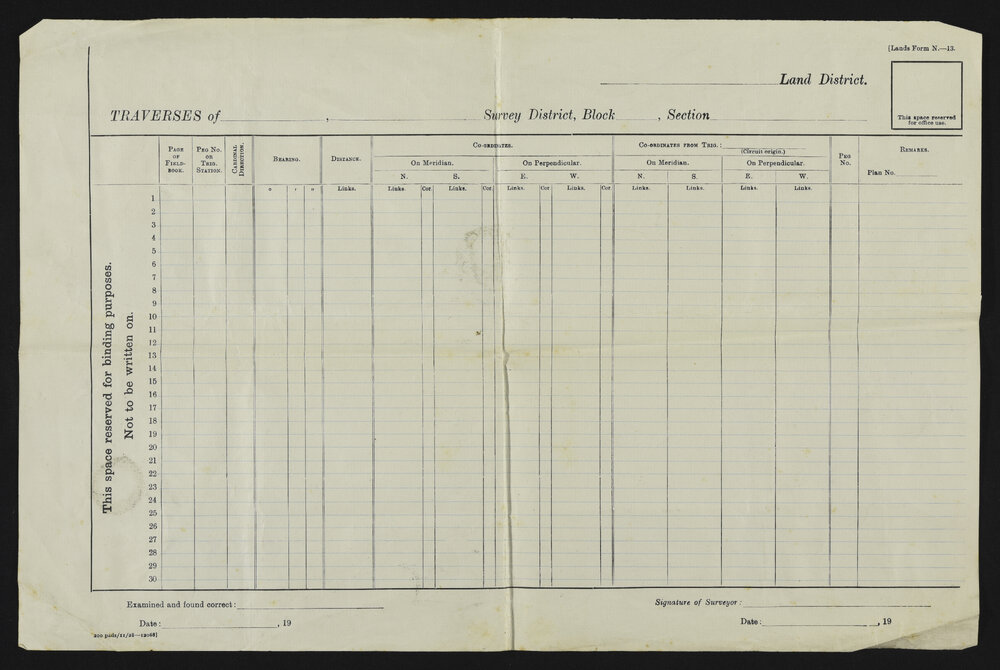 [Lands Form N.—13.
Land District.
This space reserved
for office use.
TRAVERSES of , Survey District, Block , Section
Page of Field-book.
Peg No. or Trig. Station.
Cardinal Direction.
Bearing.
Distance.
Co-ordinates.
On Meridian. On Perpendicular.
N. S. E. W.
Co-ordinates from Trig. :
(Circuit origin.)
On Meridian. On Perpendicular.
N. S. E. W.
Peg No.
Remarks.
Plan No.
° ′ ″ Links. Links. Cor. Links. Cor. Links. Cor Links. Cor. Links. Links. Links. Links.
1
2
3
4
5
6
7
8
9
10
11
12
13
14
15
16
17
18
19
20
21
22
23
24
25
26
27
28
29
30
This space reserved for binding purposes.
Not to be written on.
Examined and found correct :
Signature of Surveyor :
Date : , 19
Date : , 19
200 pads/11/21—12068]